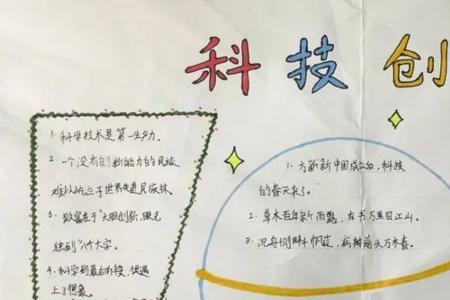 科技创
1. 科学技术是第一生产力。
2. 一个没有创新能力的民族,
难以屹立于世界先进民族林。
3. 致富在于"大胆创新,
独到"八个大字。
4. 科学到最后阶段,便遇
上了想象。
1. 方新中国成立初,科技
的春天来了。
2. 草木百年新雨露,车书万里旧江山。
3. 沉舟侧畔千帆过,病树前头万木春。